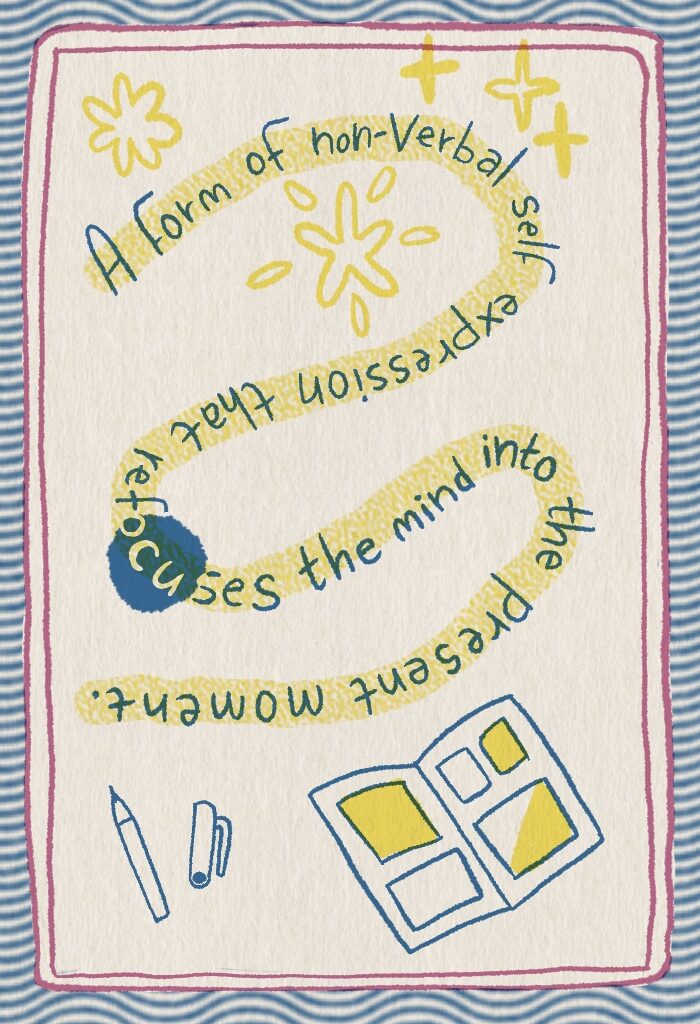 A form of non-Verbal self expression that refocuses the mind into the present moment.